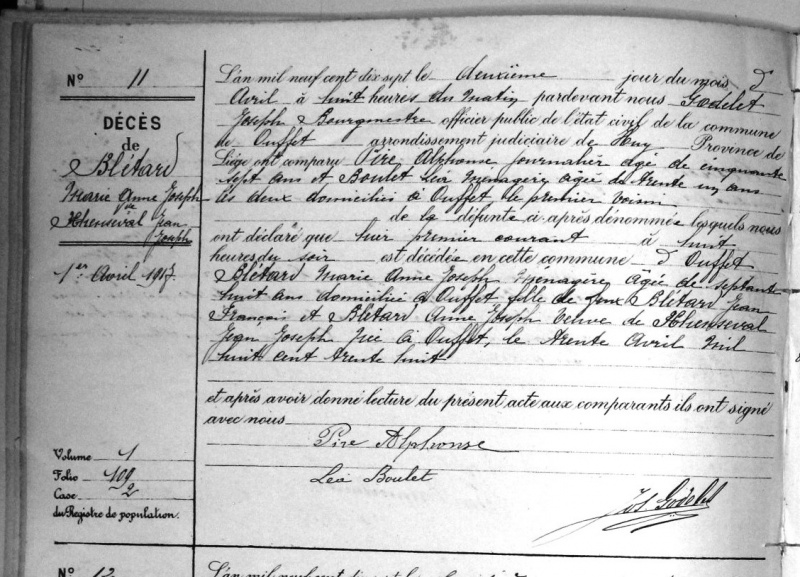 Nº 11
DÉCÈS
de
Blétard
Marie Anne Joseph
de
Xhenseval Jean
Joseph
1er Avril 1917
Volume 1
Folio 109
Case 2
du Registre de population.
L'an mil neuf cent dix sept le deuxième jour du mois d'
Avril à huit heures du matin pardevant nous Godelet
Joseph Bourgmestre officier public de l'état civil de la commune
de Ouffet arrondissement judiciaire de Huy Province de
Liège ont comparu Pire, Alphonse journalier âgé de cinquante
sept ans et Boulet Léa Ménagère, âgée de trente un ans
les deux domiciliés à Ouffet, le premier voisin
de la défunte ci-après dénommée lesquels nous
ont déclaré que hier premier courant à huit
heures du soir est décédée en cette commune d'Ouffet
Blétard Marie Anne Joseph Ménagère, âgée de septante
huit ans domiciliée à Ouffet fille de feux Blétard Jean
François et Blétard Anne Joseph Veuve de Xhenseval
Jean Joseph née à Ouffet, le trente Avril mil
huit cent trente huit
et après avoir donné lecture du présent acte aux comparants ils ont signé
avec nous
Pire Alphonse
Léa Boulet
Jos. Godelet
Nº 12
L'an mil neuf cent dix sept le